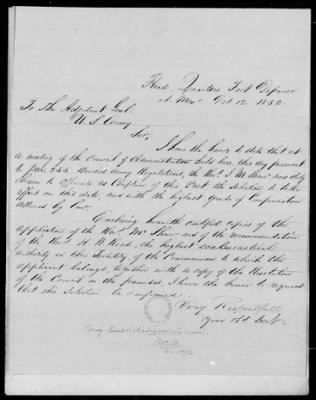 Head Quarters Fort Defiance
N. Mexo Oct 12 1852
To The Adjutant Genl.
U S Army
Sir,
I have the honor to state that at
a meeting of the Council of Administration held here, this day pursuant
to par. 255 Revised Army Regulations, the Revd J. M. Shaw was duly
chosen to officiate as Chaplain of this Post the Selection to take
effect on this date, and with the highest grade of Compensation
allowed by Law.
Enclosing herewith certified copies of the
application of the Revd Mr Shaw and of the recommendation
of the Revd H W Read, the highest ecclesiastical
authority in this Territory of the Communion to which the
applicant belongs, together with a copy of the Resolution
of the Council in the premises, I have the honor to request
that this Selection be confirmed.
Very Respectfully
Your obt Servt.